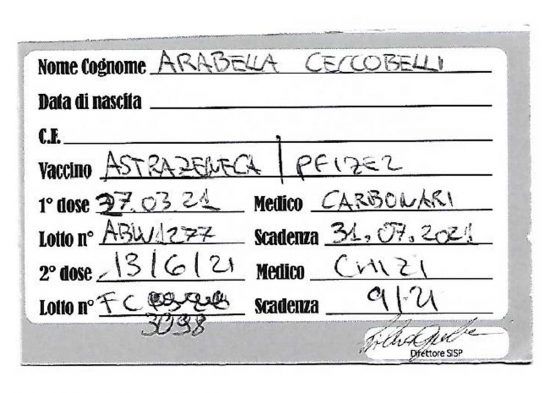 Nome Cognome ARABELLA CECCOBELLI
Data di nascita
C.F.
Vaccino ASTRAZENECA | PFIZER
1° dose 27.03 21 Medico CARBONARI
Lotto n° ABW1277 Scadenza 31.07.2021
2° dose 13/6/21 Medico CHIZI
Lotto n° FC 3098 Scadenza 9/21
Direttore SISP